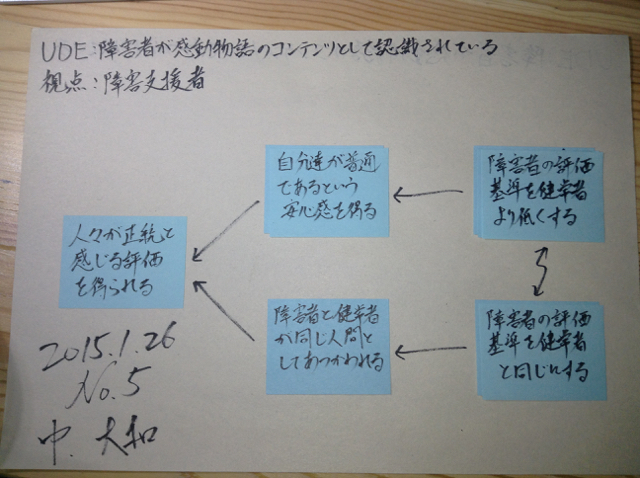 UDE:障害者が感動物語のコンテンツとして認識されている
視点:障害支援者
自分達が普通
であるという
安心感を得る
障害者の評価
基準を健常者
より低くする
人々が正統と
感じる評価
を得られる
障害者と健常者
が同じ人間と
してあつかわれる
障害者の評価
基準を健常者
と同じにする
2015.1.26
No.5
中.大和